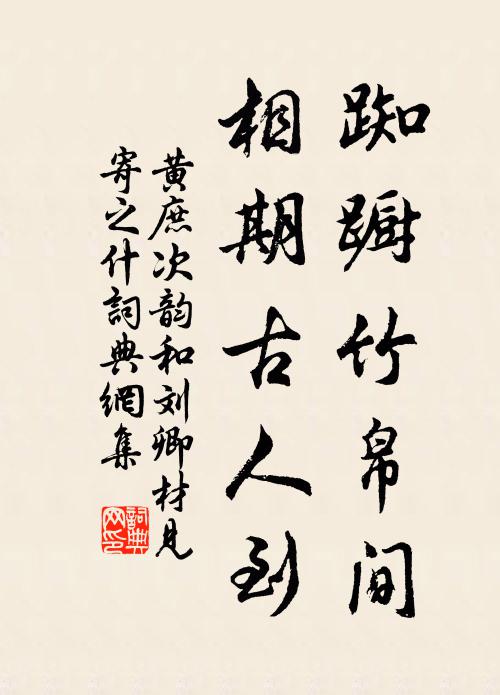 踟蹰竹帛间
相期古人到
黄庶次韵和刘卿材见
寄之什詞典網集
詞典
网印